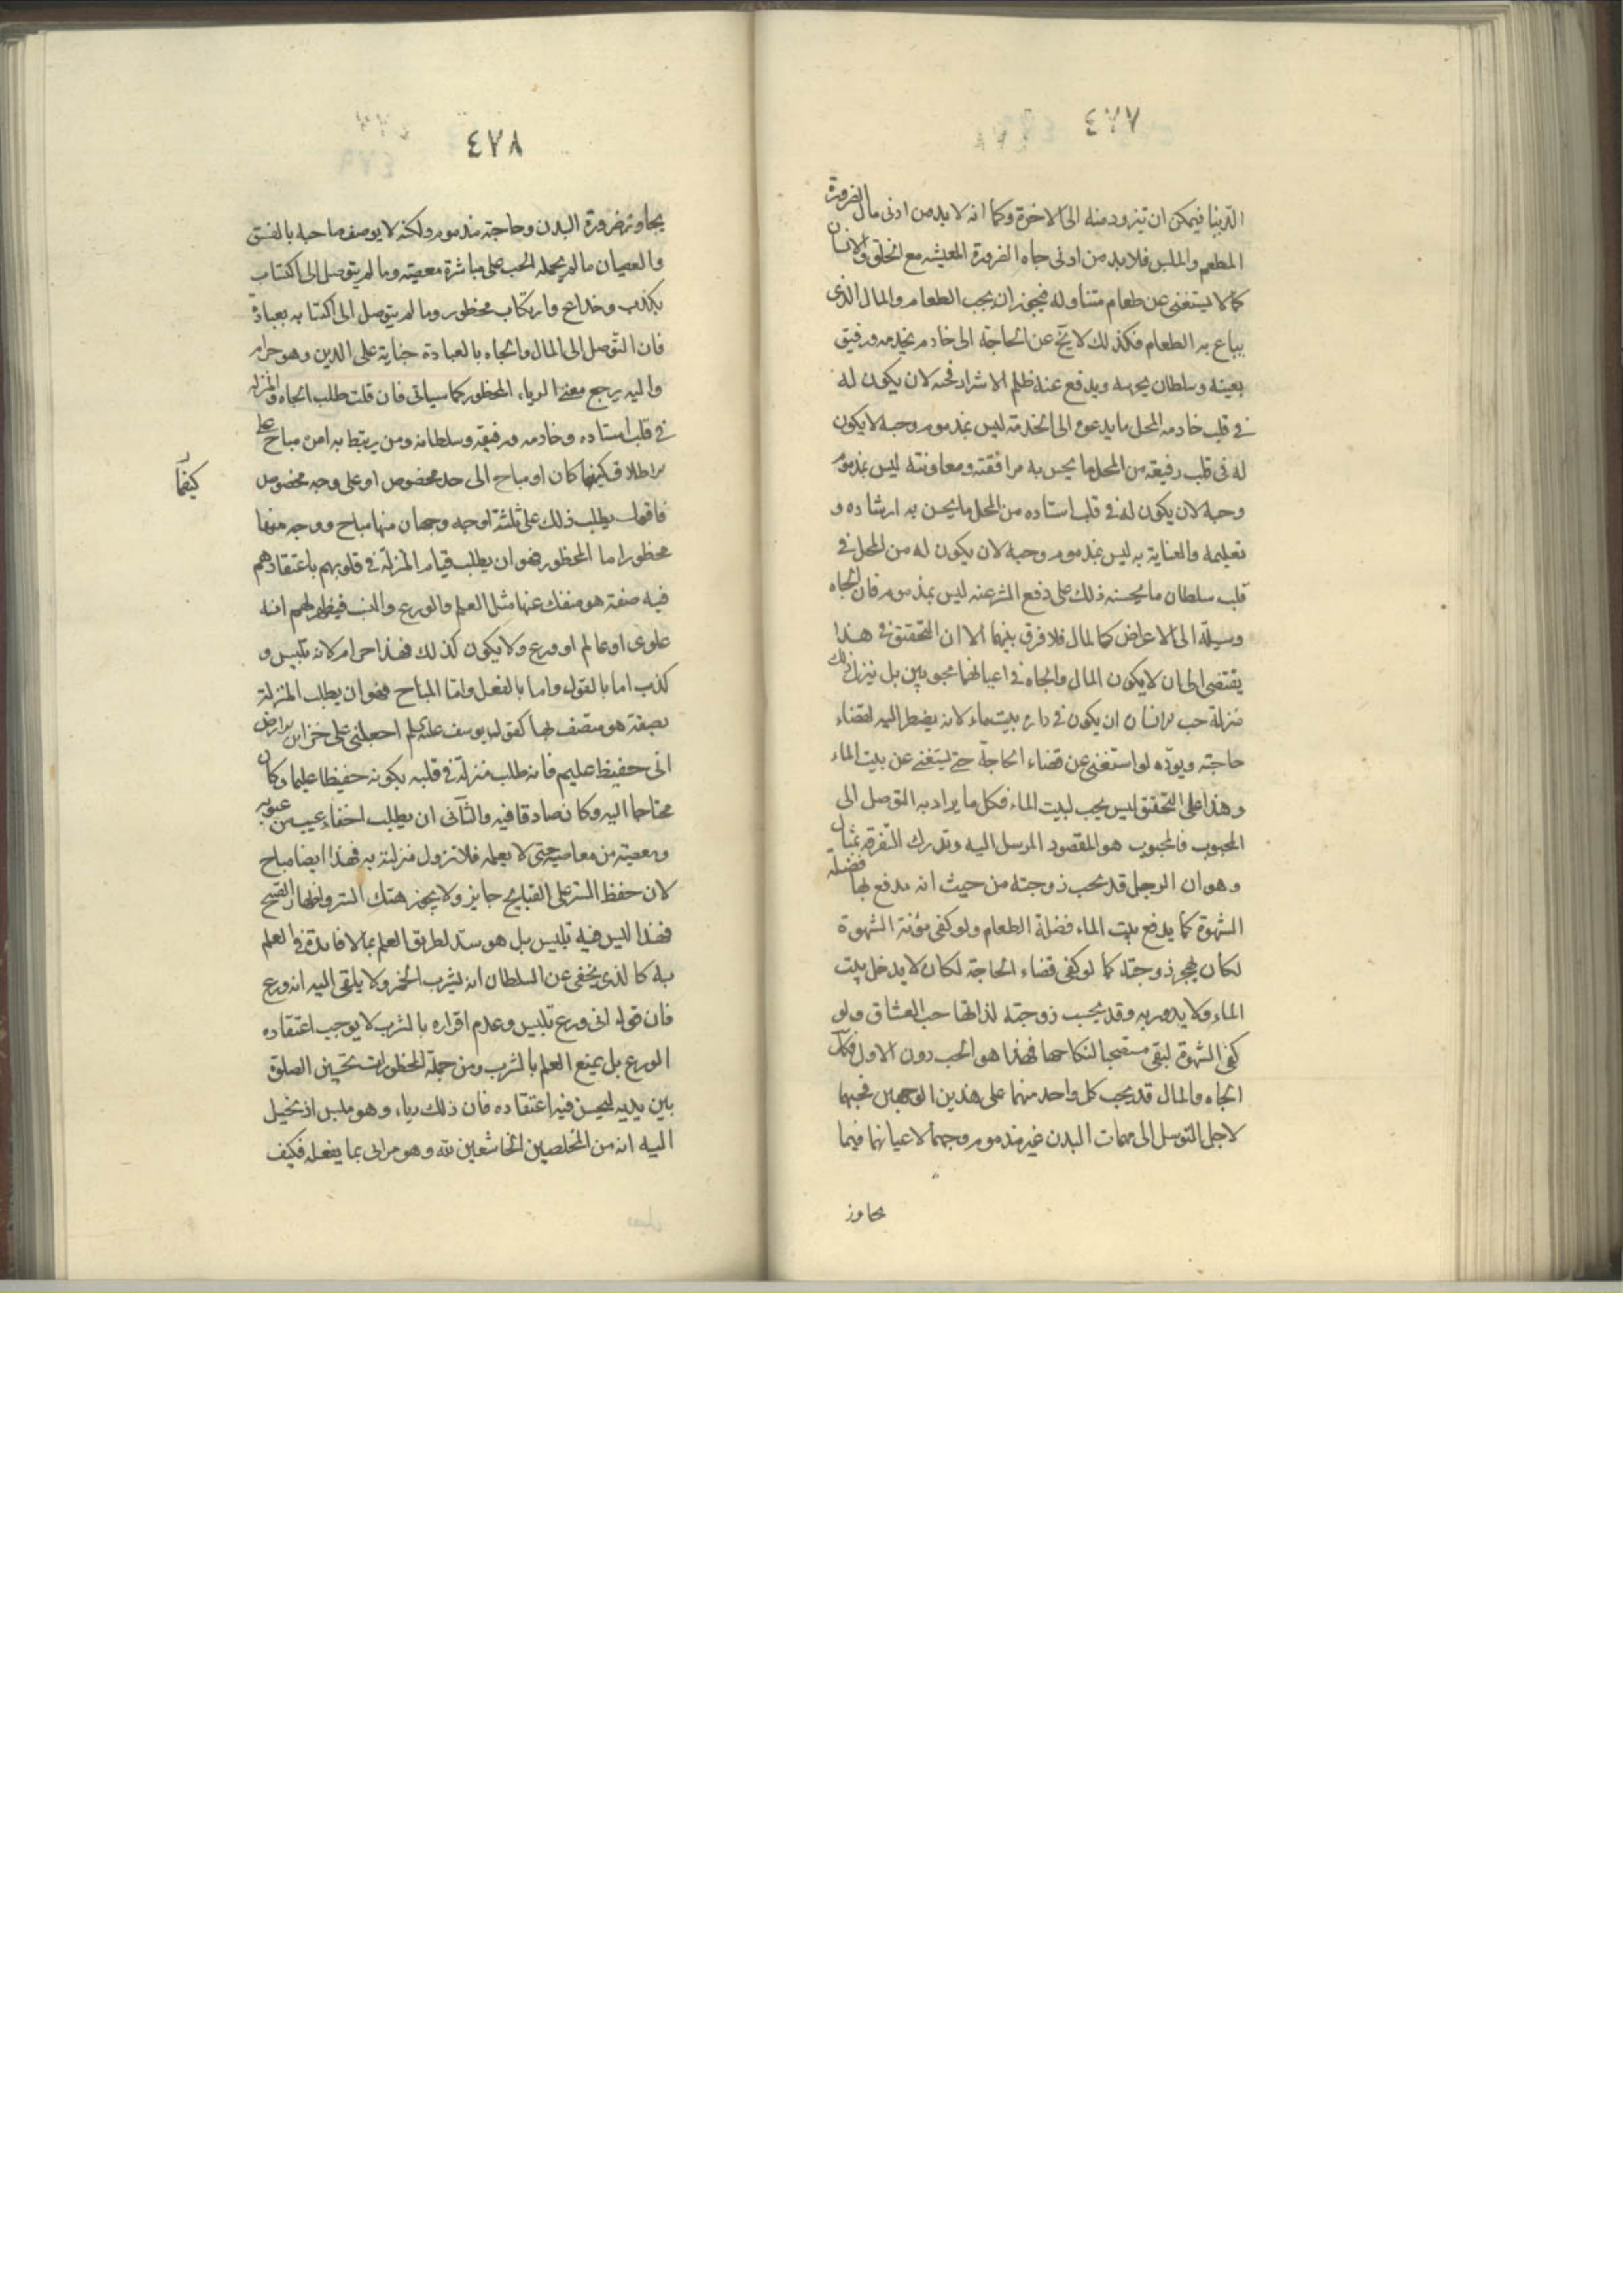 ٤٧٧
الدنيا فيمكن ان يتزود منه الى الاخرة وكما انه لا بد من ادنى مال لضرورة
المطعم والملبس فلا بد من ادنى جاه لضرورة المعيشه مع الخلق والانسان
كما لا يستغنى عن طعام يتناوله فيجوز ان يحب الطعام والمال الذى
يباع به الطعام فكذلك لا يخ عن الحاجة الى خادم يخدمه ورفيق
يعينه وسلطان يحرسه ويدفع عنه ظلم الاشرار فحبه لان يكون له
فى قلب خادمه المحل ما يدعوه الى الخدمة ليس بمذموم وحبه لا يكون
له فى قلب رفيقه من المحل ما يحسن به مرافقته ومعاونته ليس بمذموم
وحبه لان يكون له فى قلب استاده من المحل ما يحسن به ارشاده و
تعليمه والعناية به ليس بمذموم وحبه لان يكون له من المحل فى
قلب سلطان ما يحسنه ذلك على دفع الشر عنه ليس بمذموم فان الجاه
وسيلة الى الاعراض كالمال فلا فرق بينهما الا ان التحقيق فى هذا
يقتضى الى ان لا يكون المال والجاه فى اعيانهما محبوبين بل ينزل ذلك
منزلة حب الانسان ان يكون فى داره بيت ماء لانه يضطر اليه لقضاء
حاجته ويودّه لو استغنى عن قضاء الحاجة حتى يستغنى عن بيت الماء
وهذا على التحقيق ليس يحب لبيت الماء فكل ما يراد به التوصل الى
المحبوب فالمحبوب هو المقصود المرسل اليه وتدرك التفرقه بمثال
وهو ان الرجل قد يحب زوجته من حيث انه يدفع بها فضلة
الشهوة كما يدفع ببيت الماء فضلة الطعام ولو كفى مؤنة الشهوة
لكان يهجر زوجته كما لو كفى قضاء الحاجة لكان لا يدخل بيت
الماء ولا يدور به وقد يحب زوجته لذاتها حب العشاق ولو
كفى الشهوة لبقى مستصحبا لنكاحها فهذا هو الحب دون الاول فكذلك
الجاه والمال قد يحب كل واحد منهما على هذين الوجهين فحبهما
لاجل التوسل الى مهمات البدن غير مذموم وحبهما لاعيانهما فيما
يجاوز
٤٧٨
يجاوز ضرورة البدن وحاجته مذموم ولكنه لا يوصف صاحبه بالفسق
والعصيان ما لم يحمله الحب على مباشرة معصيته وما لم يتوصل الى اكتساب
بكذب وخداع وارتكاب محظور وما لم يتوصل الى اكتسابه بعبادة
فان التوصل الى المال والجاه بالعبادة جناية على الدين وهو حرام
واليه يرجع معنى الرياء المحظور كما سياتى فان قلت طلب الجاه والمنزلة
فى قلب استاده وخادمه ورفيقه وسلطانه ومن يرتبط به امن مباح على
الاطلاق كيفما كان او مباح الى حد مخصوص او على وجه مخصوص
كيفما
فاقول يطلب ذلك على ثلثة اوجه وجهان منها مباح ووجه منها
محظور اما المحظور فهو ان يطلب قيام المنزلة فى قلوبهم باعتقادهم
فيه صفة هو منفك عنها مثل العلم والورع والنسب فيظهر لهم انه
علوى او عالم او ورع ولا يكون كذلك فهذا حرام لانه تلبيس و
كذب اما بالقول واما بالفعل وامّا المباح فهو ان يطلب المنزلة
بصفة هو متصف بها كقول يوسف عليه السلام اجعلنى على خزاين الارض
انى حفيظ عليم فانه طلب منزلة فى قلبه بكونه حفيظا عليما وكان
محتاجا اليه وكان صادقا فيه والثانى ان يطلب اخفاء عيب من عيوبه
ومعصيته من معاصيه حتى لا يعلمه فلا تزول منزلته به فهذا ايضا مباح
لان حفظ الستر على القبايح جايز ولا يجوز هتك الستر واظهار القبيح
فهذا ليس فيه تلبيس بل هو سد لطريق العلم بما لا فايدة فى العلم
به كالذى يخفى عن السلطان انه يشرب الخمر ولا يلقى اليه انه ورع
فان قوله انى ورع تلبيس وعدم اقراره بالشرب لا يوجب اعتقاده
الورع بل يمنع العلم بالشرب ومن جملة المحظورات تحسين الصلوة
بين يديه ليحسن فيه اعتقاده فان ذلك رياء وهو ملبس اذ يخيل
اليه انه من المخلصين الخاشعين لله وهو مرائى بما يفعله فكيف